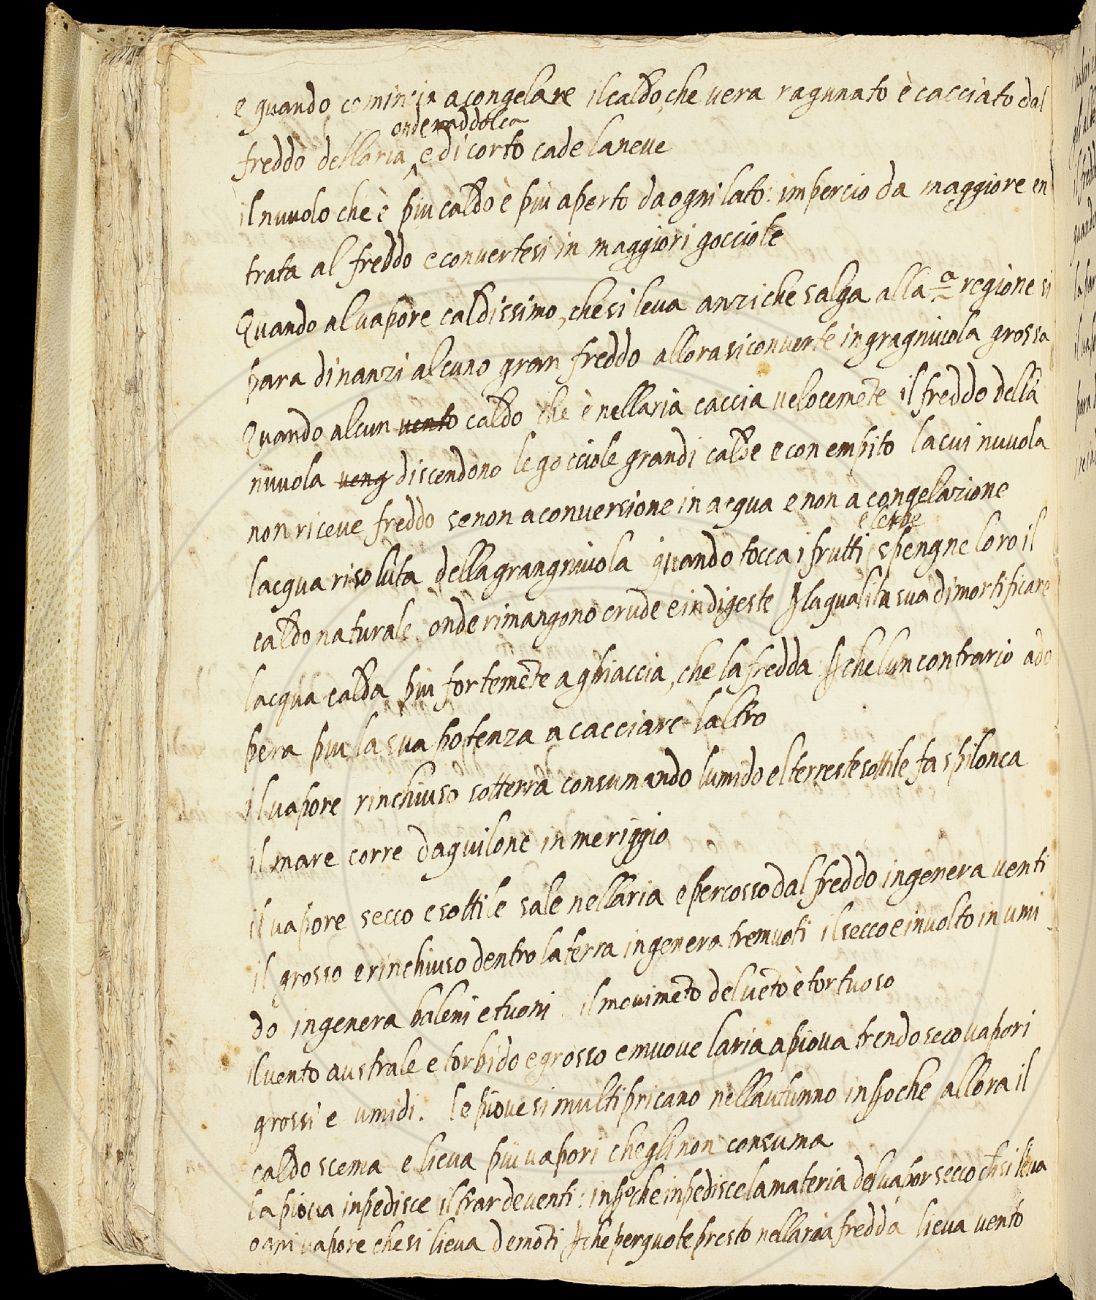 e quando comincia acongelare il caldo, che vera ragunato è cacciato dal
onde raddolca
freddo dellaria e di corto cade laneve
il nuvolo che è piu caldo è piu aperto da ogni lato: impercio da maggiore en
trata al freddo e convertesi in maggiori gocciole
Quando al vapore caldissimo, che si leva anzi che salga alla regione si
para dinanzi alcuno gran freddo allora si converte in gragniuola grossa
Quando alcun vento caldo che è nellaria caccia velocemēte il freddo della
nuvola veng discendono le gocciole grandi calde e con empito la cui nuvola
non riceve freddo se non a conversione in acqua e non a congelazione
e lerbe
lacqua risoluta della grangniuola quando tocca i frutti spengne loro il
caldo naturale, onde rimangono crude e indigeste p la qualita sua di mortificare
lacqua calda piu fortemēte aghiaccia, che la fredda p che lun contrario ado
pera piu la sua potenza a cacciare laltro
Il vapore rinchiuso sotterra consumando lumido el terreste sottile fa spilonca
il mare corre daquilone in meriggio
il vapore secco e sottile sale nellaria e percosso dal freddo ingenera venti
il grosso e rinchiuso dentro la terra ingenera tremuoti il secco e involto in umi
do ingenera baleni e tuoni. il movimēto del vēto è tortuoso
il vento australe e torbido e grosso e muove laria a piova trendo seco vapori
grossi e umidi. le piove si multipricano nellautunno in po che allora il
caldo scema e lieva piu vapori che gli non consuma
la piova inpedisce il trar de venti: in po che inpedisce la materia del vapor secco ch si leva
ogni vapore che si lieva de mōti p che perquote presto nellaria fredda lieva vento